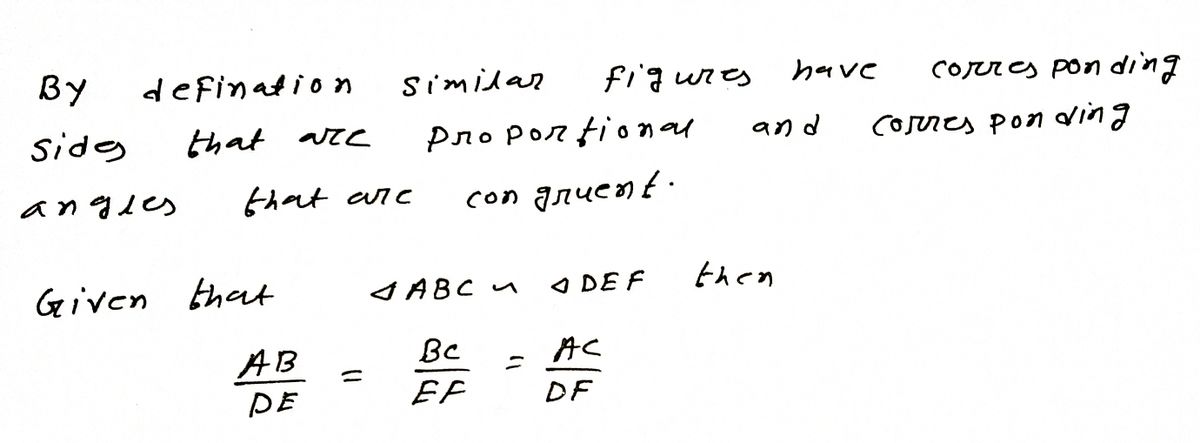 By defination similar figures have corresponding
sides that are proportional and corresponding
angles that are congruent.
Given that △ABC ~ △DEF then
AB/DE = BC/EF = AC/DF